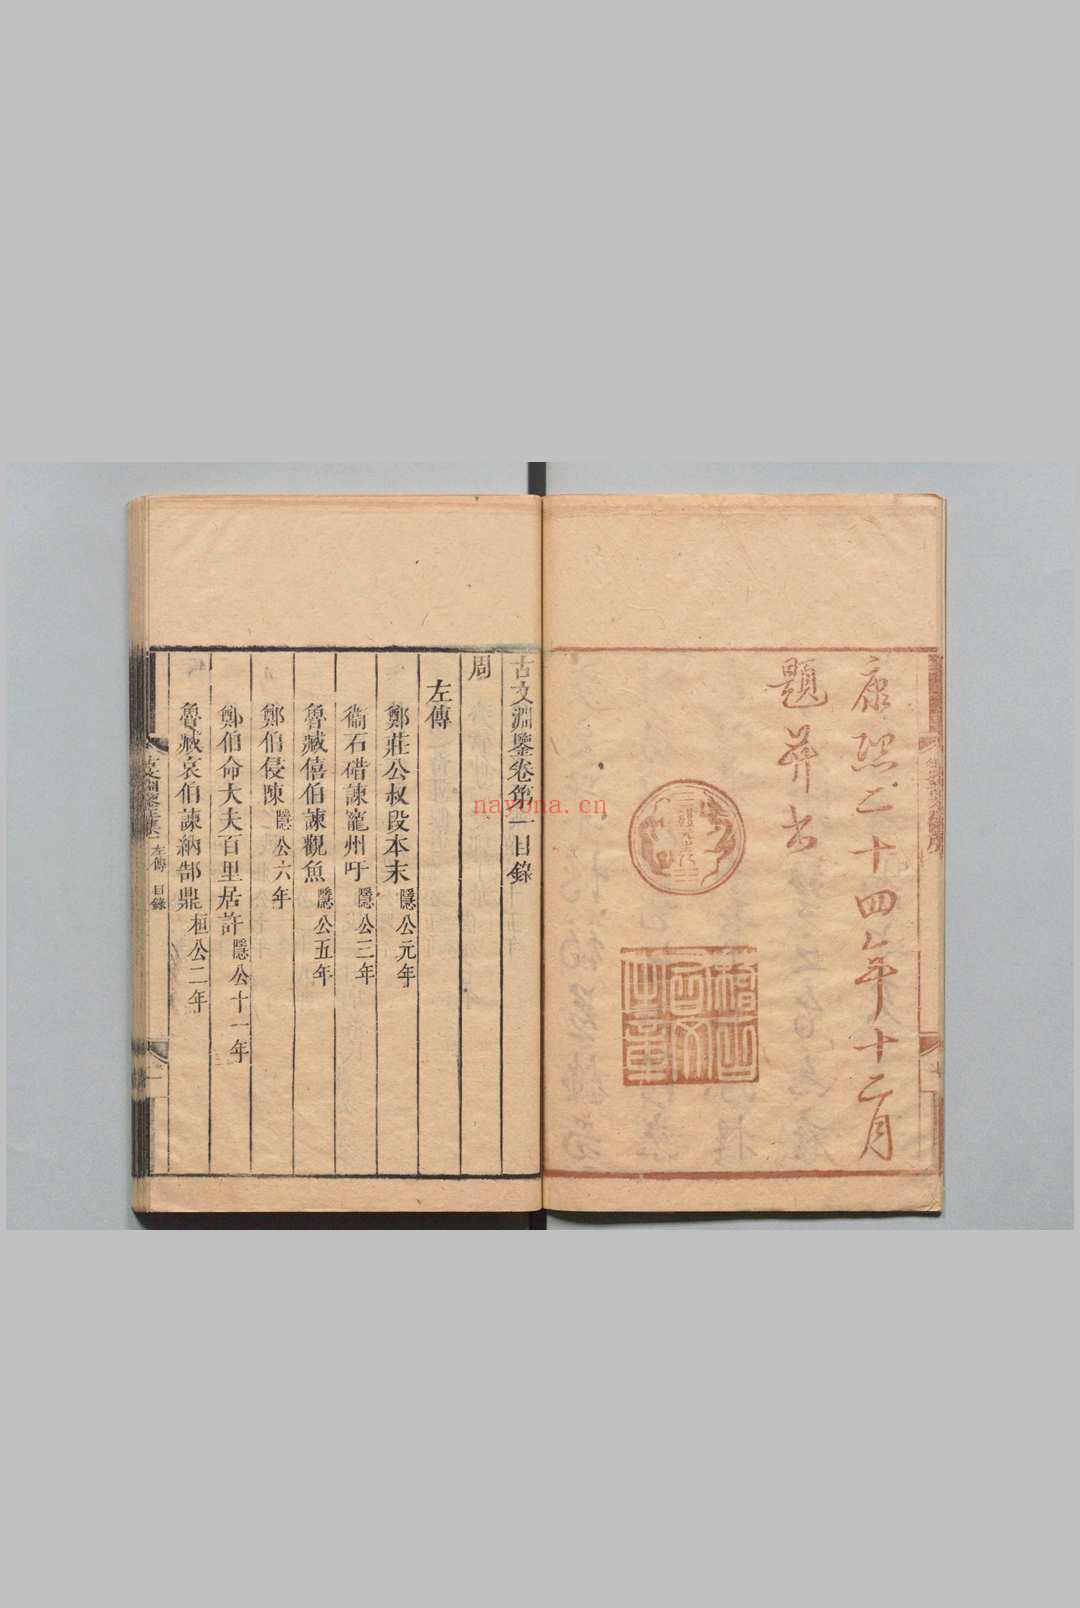 康熙二十四年十二月
題并書
稽古右文之章
nayona.cn
古文淵鑒卷第一目錄
周
左傳
鄭莊公叔段本末 隱公元年
衞石碏諫寵州吁 隱公三年
魯臧僖伯諫觀魚 隱公五年
鄭伯侵陳 隱公六年
鄭伯命大夫百里居許 隱公十一年
魯臧哀伯諫納郜鼎 桓公二年
左傳 目錄